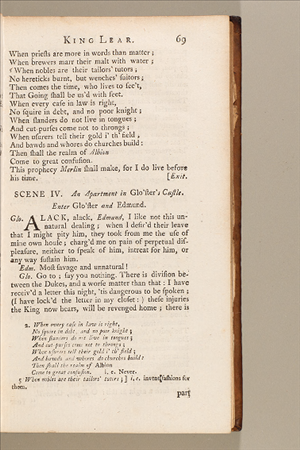 KING LEAR. 69
When priests are more in words than matter;
When brewers marr their malt with water;
When nobles are their tailors' tutors;
No hereticks burnt, but wenches' suitors;
Then comes the time, who lives to see't,
That Going shall be us'd with feet.
When every case in law is right,
No squire in debt, and no poor knight;
When slanders do not live in tongues;
And cut-purses come not to throngs;
When usurers tell their gold i' th' field,
And bawds and whores do churches build:
Then shall the realm of Albion
Come to great confusion.
This prophecy Merlin shall make, for I do live before
his time. [Exit.
SCENE IV. An Apartment in Glo'ster's Castle.
Enter Glo'ster and Edmund.
Glo. ALACK, alack, Edmund, I like not this un-
natural dealing; when I desir'd their leave
that I might pity him, they took from me the use of
mine own house; charg'd me on pain of perpetual dis-
pleasure, neither to speak of him, intreat for him, or
any way sustain him.
Edm. Most savage and unnatural!
Glo. Go to; say you nothing. There is division be-
tween the Dukes, and a worse matter than that: I have
receiv'd a letter this night, 'tis dangerous to be spoken;
(I have lock'd the letter in my closet:) these injuries
the King now bears, will be revenged home; there is
2. When every case in law is right,
No squire in debt, and no poor knight;
When slanders do not live in tongues;
And cut-purses come not to throngs;
When usurers tell their gold i' th' field;
And bawds and whores do churches build:
Then shall the realm of Albion
Come to great confusion. i. e. Never.
When nobles are their tailors' tutors;] i. e. invent fashions for
them.
part